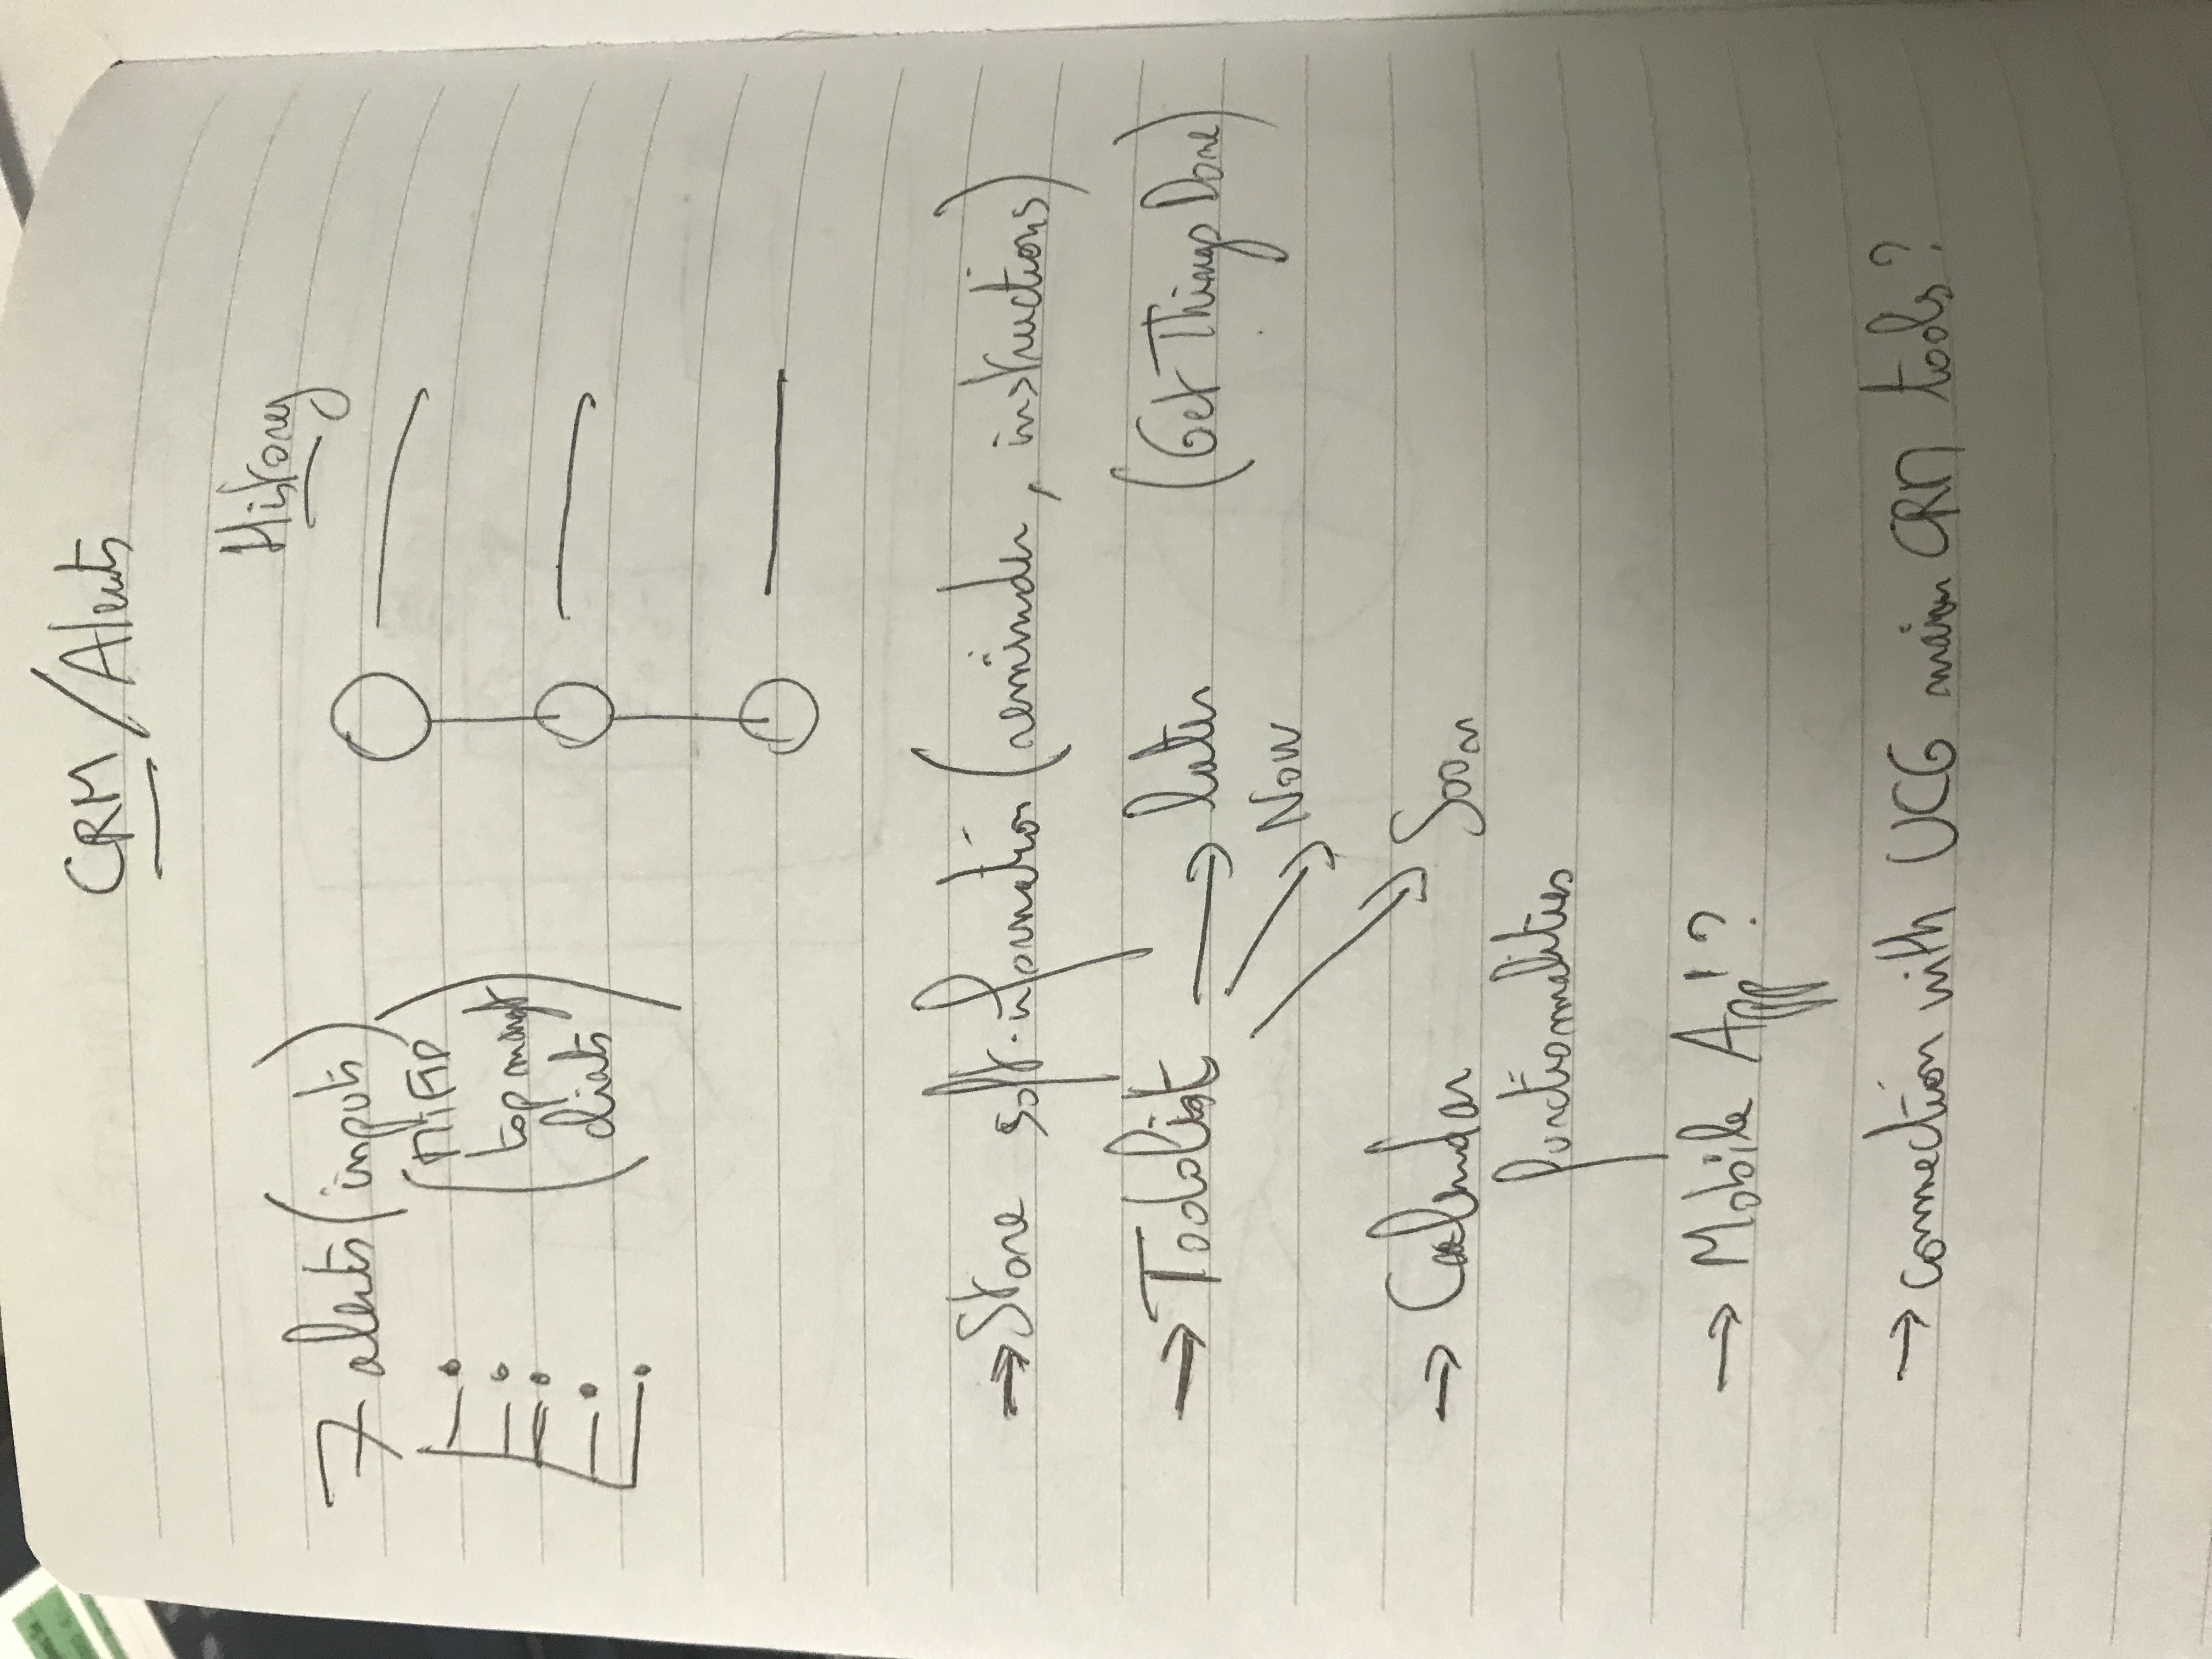 CRM / Alerts
History
7 alerts (inputs)
(MiFID
top mangt
clients)
→ Store soft-information (reminder, instructions)
→ Todolist → later (Get Things Done)
→ Now
→ Soon
→ Calendar
functionnalities
→ Mobile App' ?
→ connection with UCG main CRM tools ?